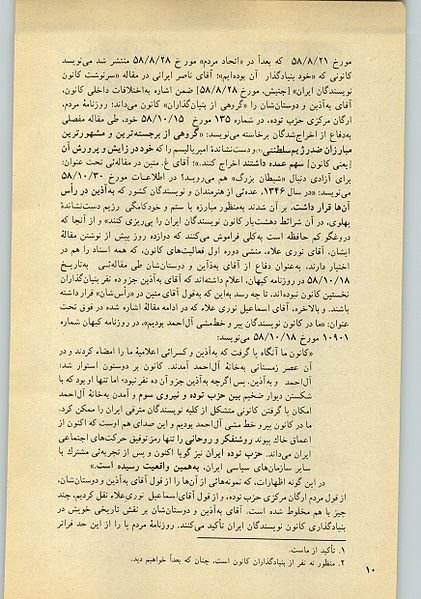 مورخ ۵۸/۸/۲۱ که بعداً در «اتحاد مردم» مورخ ۵۸/۸/۲۸ منتشر شد می‌نویسد
کانونی که «خود بنیادگذار آن بوده‌ایم»؛ آقای ناصر ایرانی در مقاله «سرنوشت کانون
نویسندگان ایران» [جنبش، مورخ ۵۸/۸/۲۸] ضمن اشاره به‌اختلافات داخلی کانون،
آقای به‌آذین و دوستان‌شان را «گروهی از بنیان‌گذاران» کانون می‌داند؛ روزنامهٔ مردم،
ارگان مرکزی حزب توده، در شماره ۱۳۵ مورخ ۵۸/۱۰/۱۵ خود، طی مقاله مفصلی
به‌دفاع از اخراج‌شدگان برخاسته می‌نویسد: «گروهی از برجسته‌ترین و مشهورترین
مبارزان ضدرژیم سلطنتی و دست‌نشاندهٔ امپریالیسم را که خود در زایش و پرورش آن
[یعنی کانون] سهم عمده داشتند اخراج کنند.»؛ آقای غ. متین در مقاله‌ئی تحت عنوان:
برای آزادی دنبال «شیطان بزرگ» هم می‌روید؟ در اطلاعات مورخ ۵۸/۱۰/۳۰
می‌نویسد: «در سال ۱۳۴۶، عده‌ئی از هنرمندان و نویسندگان کشور که به‌آذین در رأس
آن‌ها قرار داشت، بر آن شدند به‌منظور مبارزه با ستم و خودکامگی رژیم دست‌نشاندهٔ
پهلوی، در آن شرائط دهشت‌بار کانون نویسندگان ایران را پی‌ریزی کنند» و از آنجا که
دروغگو کم حافظه است به‌کلی فراموش می‌کنند که دوازده روز پیش از نوشتن مقالهٔ
ایشان، آقای نوری علاء، منشی دوره اول فعالیت‌های کانون، که همه اسناد را هم در
اختیار دارند، به‌عنوان دفاع از آقای به‌آذین و دوستان‌شان طی مقاله‌ئی به‌تاریخ
۵۸/۱۰/۱۸ در روزنامه کیهان، اعلام داشته‌اند که آقای به‌آذین جزو ده نفر بنیان‌گذاران
نخستین کانون نبوده‌اند، تا چه رسد به‌این که به‌قول آقای متین در «رأس‌شان» قرار داشته
باشند. و بالاخره، آقای اسماعیل نوری علاء که در ادامه مقاله‌ٔ اشاره شده در فوق تحت
عنوان: «ما در کانون نویسندگان پیر و خط‌مشی آل‌احمد بودیم»، در روزنامه کیهان شماره
۱۰۹۰۱ مورخ ۵۸/۱۰/۱۸ می‌نویسد:
«کانون ما آنگاه پا گرفت که به‌آذین و کسرائی اعلامیهٔ ما را امضاء کردند و در
آن عصر زمستانی به‌خانهٔ آل‌احمد آمدند. کانون بر دوستون استوار شد:
آل‌احمد و به‌آذین. پس اگرچه به‌آذین جزو آن ده نفر نبود۲ اما تنها او بود که با
شکستن دیوار ضخیم بین حزب توده و نیروی سوم و آمدن به‌خانهٔ آل‌احمد
امکان پا گرفتن کانونی متشکل از کلیه نویسندگان مترقی ایران را ممکن کرد.
ما در کانون پیر و خط مشی آل‌احمد بودیم و این صدای هم اوست که اکنون از
اعماق خاک پیوند روشنفکر و روحانی را تنها رمز توفیق حرکت‌های اجتماعی
ایران می‌داند. حزب توده ایران نیز گویا اکنون و پس از تجربه‌ئی مشترک با
سایر سازمان‌های سیاسی ایران، به‌همین واقعیت رسیده است.»
در این گونه اظهارات، که نمونه‌هائی از آن‌ها را از قول آقای به‌آذین و دوستان‌شان،
از قول مردم ارگان مرکزی حزب توده، و از قول آقای اسماعیل نوری‌علاء نقل کردیم، چند
چیز با هم مخلوط شده است. آقای به‌آذین و دوستان‌شان بر نقش تاریخی خویش در
بنیادگذاری کانون نویسندگان ایران تأکید می‌کنند. روزنامهٔ مردم پا را از این حد فراتر
۱. تأکید از ماست.
۲. منظور نه نفر از بنیادگذاران کانون است، چنان که بعداً خواهیم دید.
۱۰